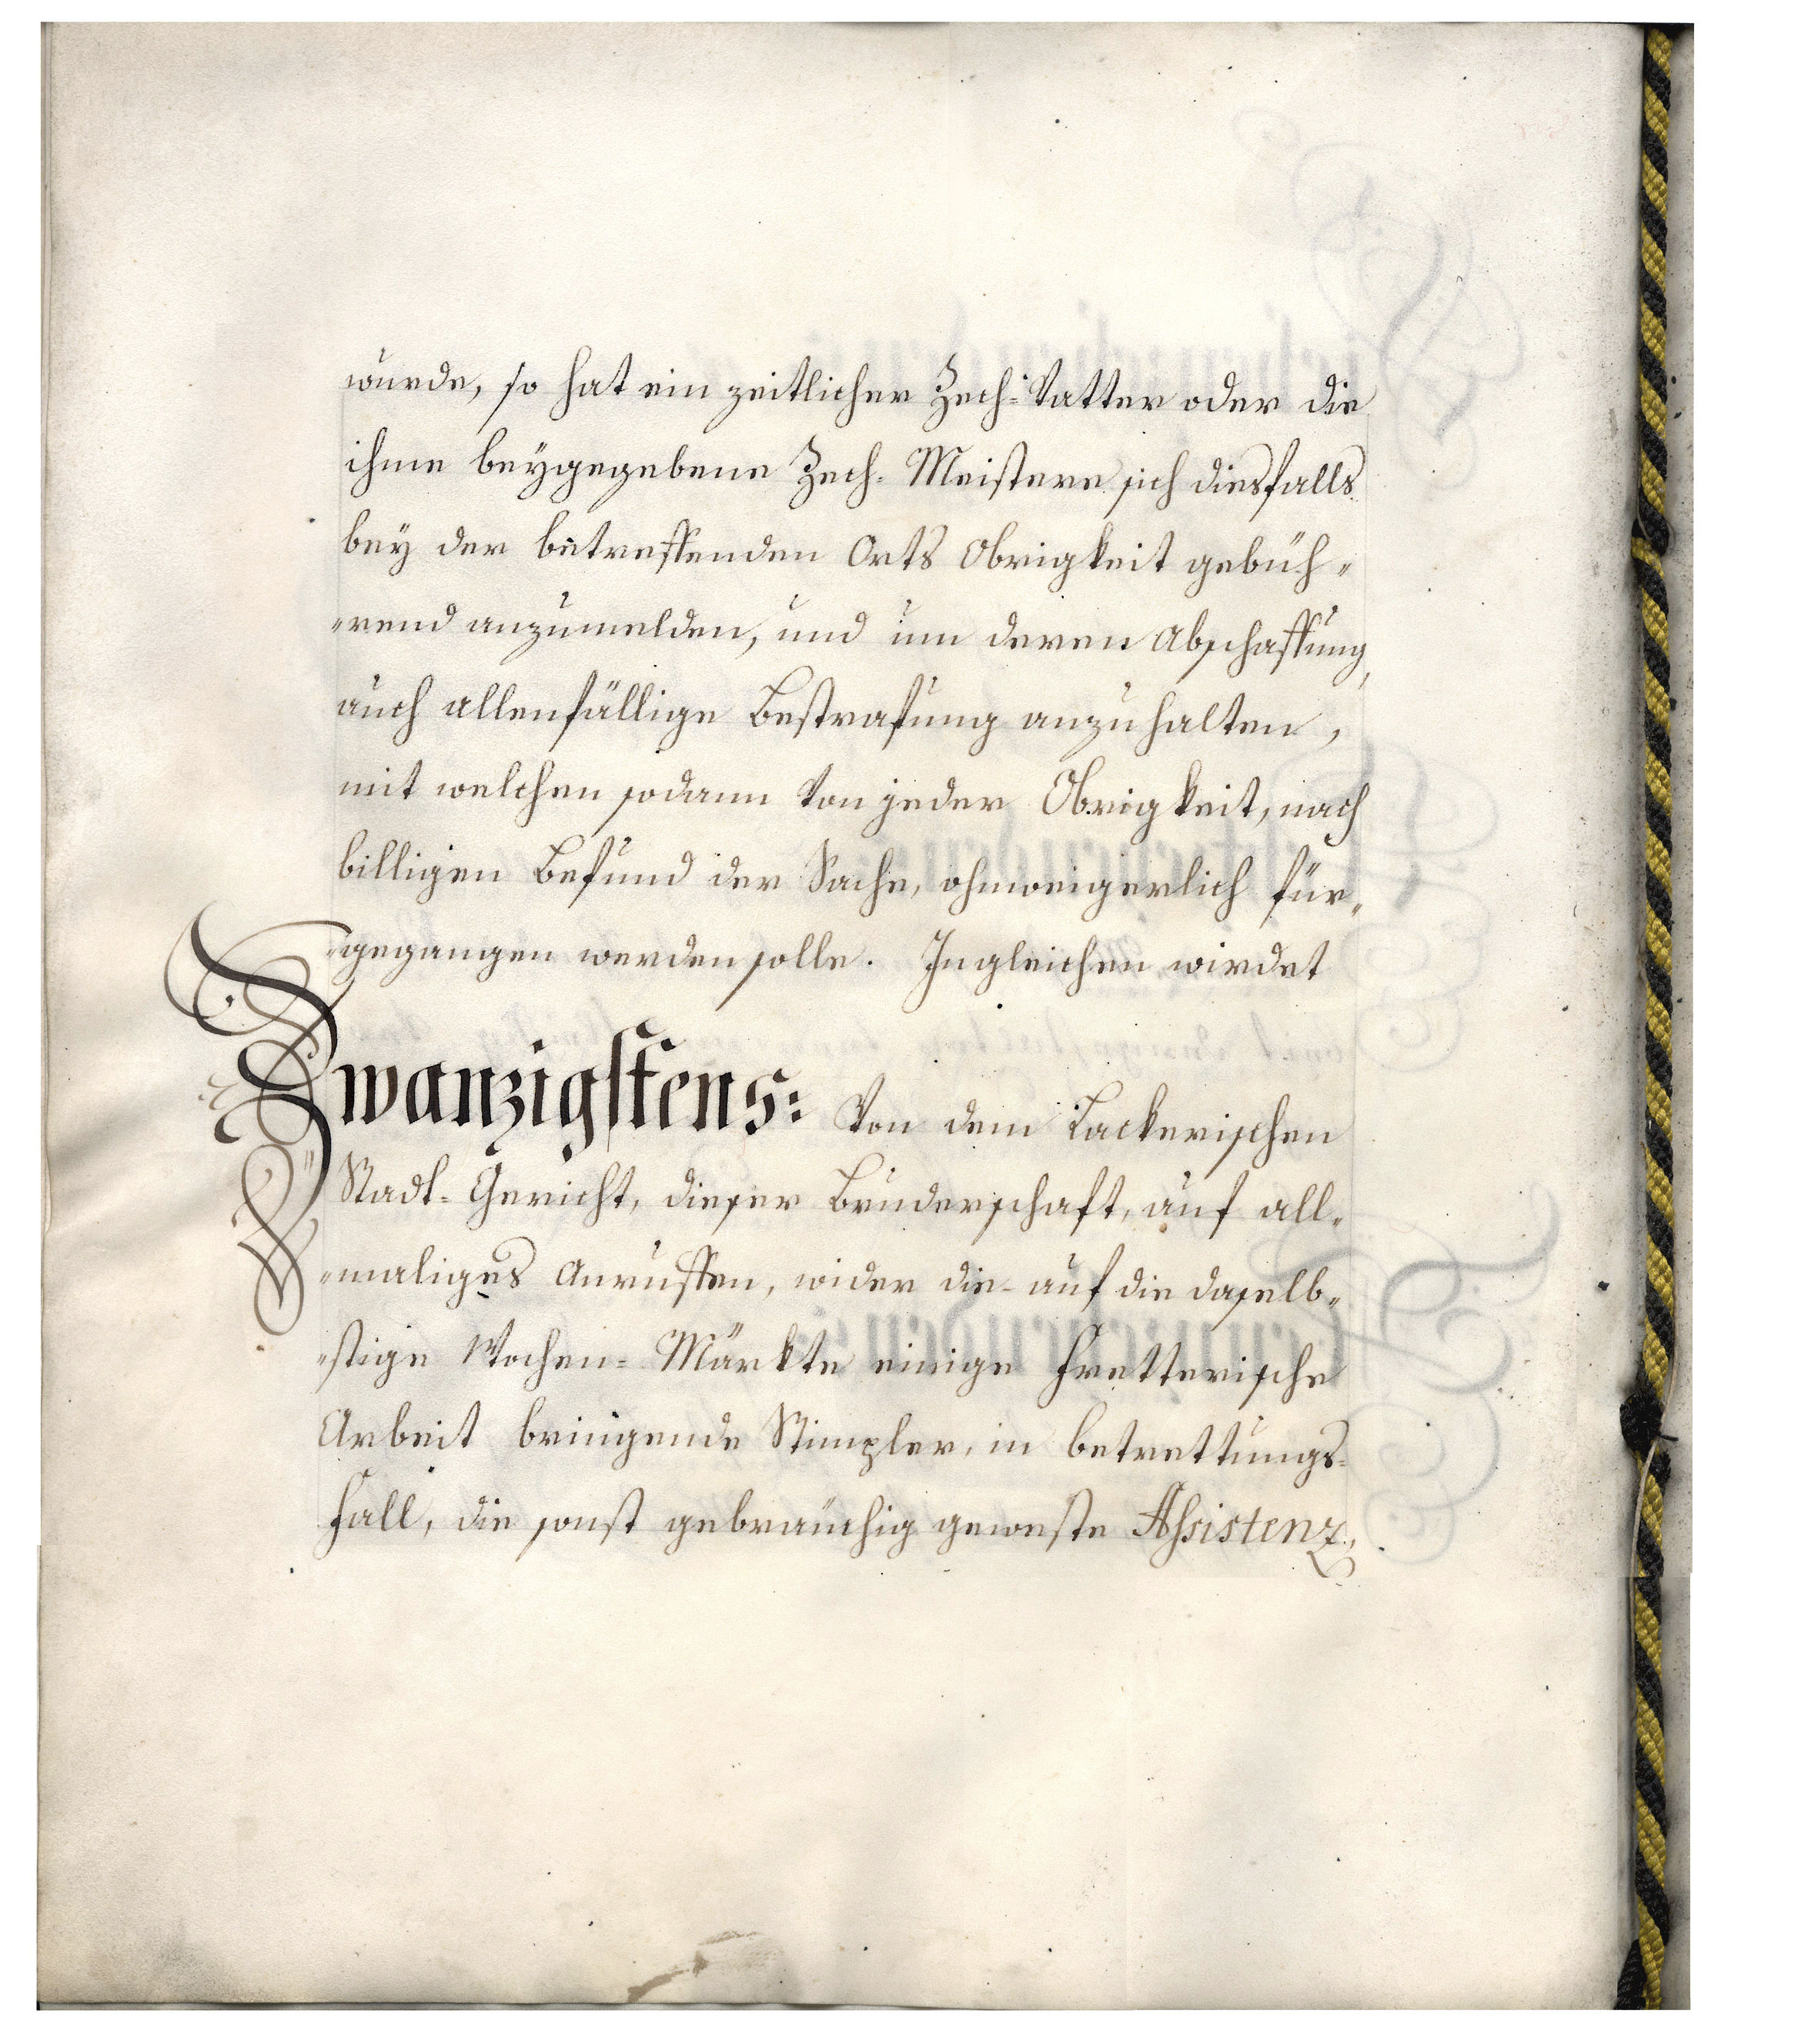 wurde, so hat ein zeitlicher Zech=Vatter oder die
ihme beygegebene Zech=Meistere sich diesfalls
bey der betreffenden Orts Obrigkeit gebüh„
„rend anzumelden, und um deren Abschaffung,
auch allenfällige Bestrafung anzuhalten,
mit welchen sodann von jeder Obrigkeit, nach
billigen Befund der Sache, ohnweigerlich für„
„gegangen werden solle. Ingleichen wirdet
Zwanzigstens: Von dem Lackerischen
Stadt=Gericht, dieser Bruderschaft, auf all„
„maliges Anruffen, wider die auf die daselb„
„stige Wochen=Märkte einige Fretterische
Arbeit bringende Stimpler, in betrettungs=
Fall, die sonst gebräuchig geweste Assistenz,